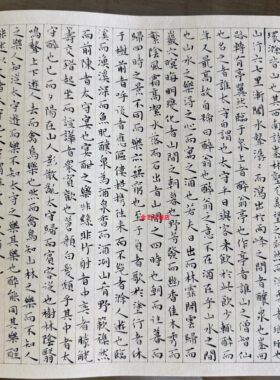 環滁
山行六七里漸聞水聲潺潺而瀉出於兩峰之間者釀泉也峰回
路轉有亭翼然臨於泉上者醉翁亭也作亭者誰山之僧智仙
也名之者誰太守自謂也太守與客來飲於此飲少輒醉而
年又最高故自號曰醉翁也醉翁之意不在酒在乎山水之間
也山水之樂得之心而寓之酒也若夫日出而林霏開雲歸而
巖穴暝晦明變化者山間之朝暮也野芳發而幽香佳木秀而
繁陰風霜高潔水落而石出者山間之四時也朝而往暮而
歸四時之景不同而樂亦無窮也至於負者歌於塗行者休
于樹前者呼後者應傴僂提攜往來而不絕者滁人遊也臨
溪而漁溪深而魚肥釀泉為酒泉香而酒洌山肴野蔌雜然
而前陳者太守宴也宴酣之樂非絲非竹射者中弈者勝觥
籌交錯起坐而諠譁者眾賓歡也蒼顏白髮頹乎其中者太
守醉也已而夕陽在山人影散亂太守歸而賓客從也樹林陰翳
鳴聲上下遊人去而禽鳥樂也然而禽鳥知山林之樂而不知人
之樂人知從太守遊而樂而不知太守之樂其樂也醉能同其樂醒
能述以文者